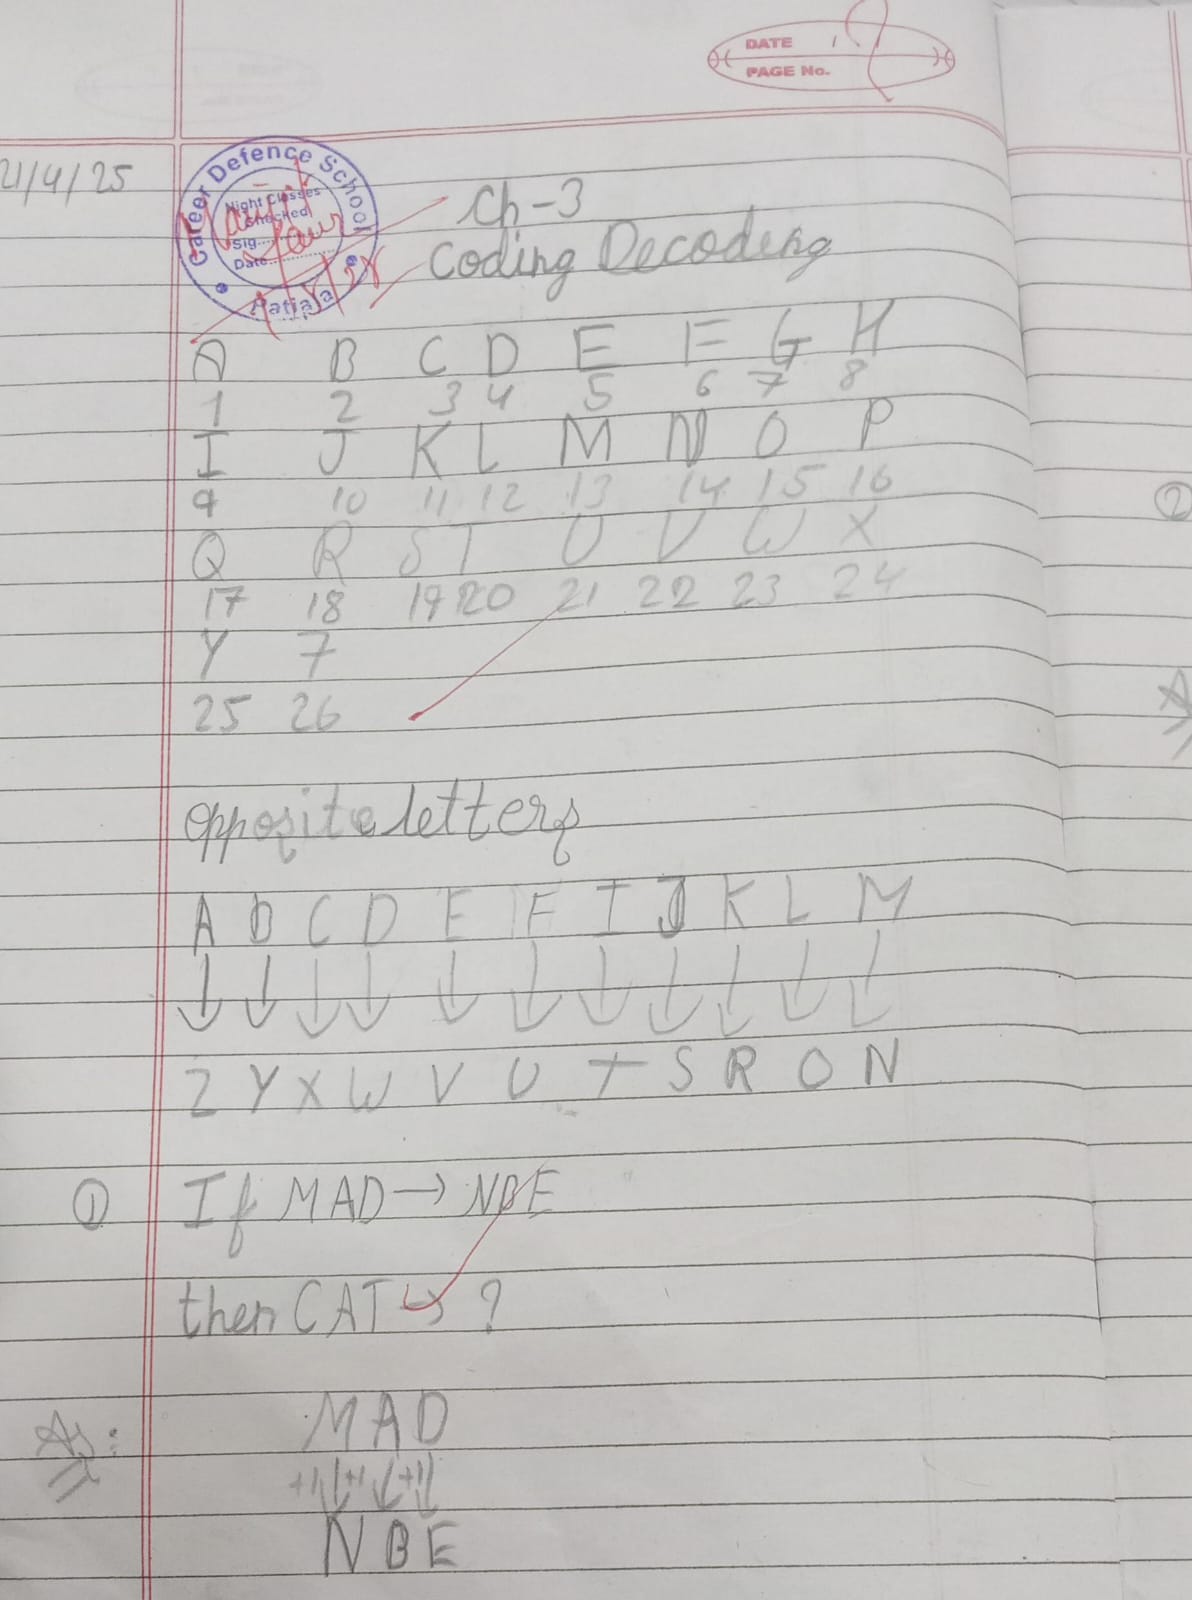 DATE
PAGE No.
21/4/25
Career Defence School
Night Classes
Checked
Sig.
Date
Patiala
Ch-3
Coding Decoding
A B C D E F G H
1 2 3 4 5 6 7 8
I J K L M N O P
9 10 11 12 13 14 15 16
Q R S T U V W X
17 18 19 20 21 22 23 24
Y Z
25 26
opposite letters
A B C D E F I J K L M
↓ ↓ ↓ ↓ ↓ ↓ ↓ ↓ ↓ ↓ ↓
Z Y X W V U T S R O N
① If MAD → NBE
then CAT → ?
As: MAD
+1↓ +1↓ +1↓
NBE
②